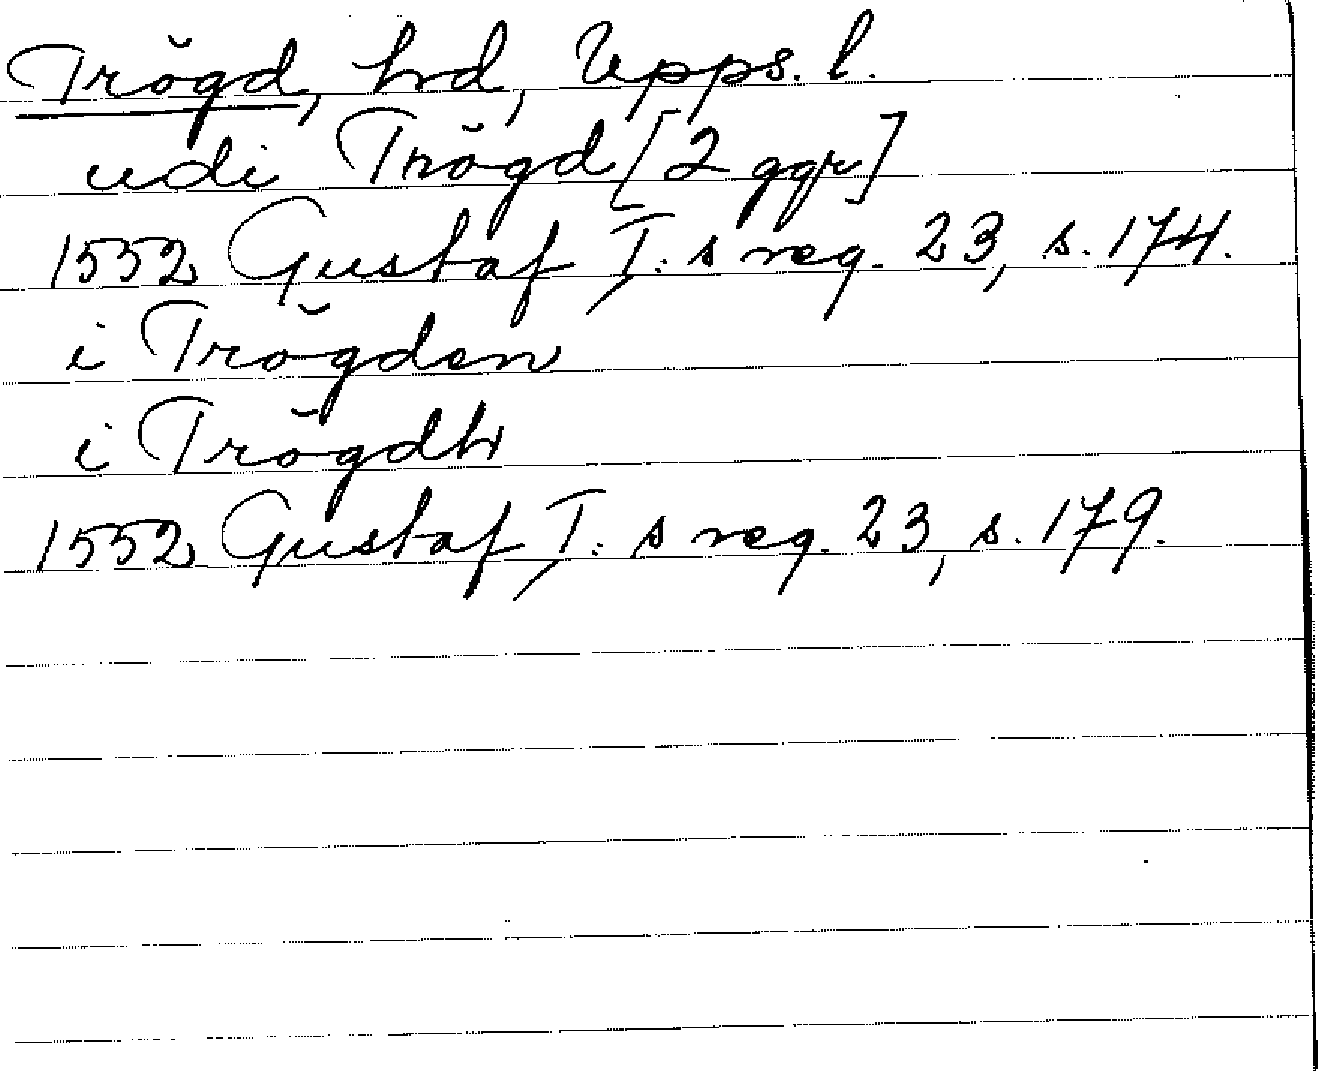 Trögd, hd, Upps. l.
udi Trögd [2 ggr]
1552 Gustaf I:s reg. 23, s. 174.
i Trögden
i Trögdh
1552 Gustaf I:s reg. 23, s. 179.